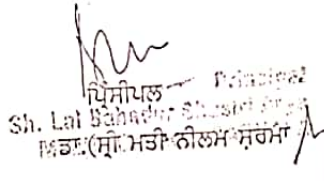 ਪ੍ਰਿੰਸੀਪਲ Principal
Sh. Lal Bahadur Shastri
ਡਾ. (ਸ੍ਰੀ ਮਤੀ ਨੀਲਮ ਸ਼ਰਮਾ